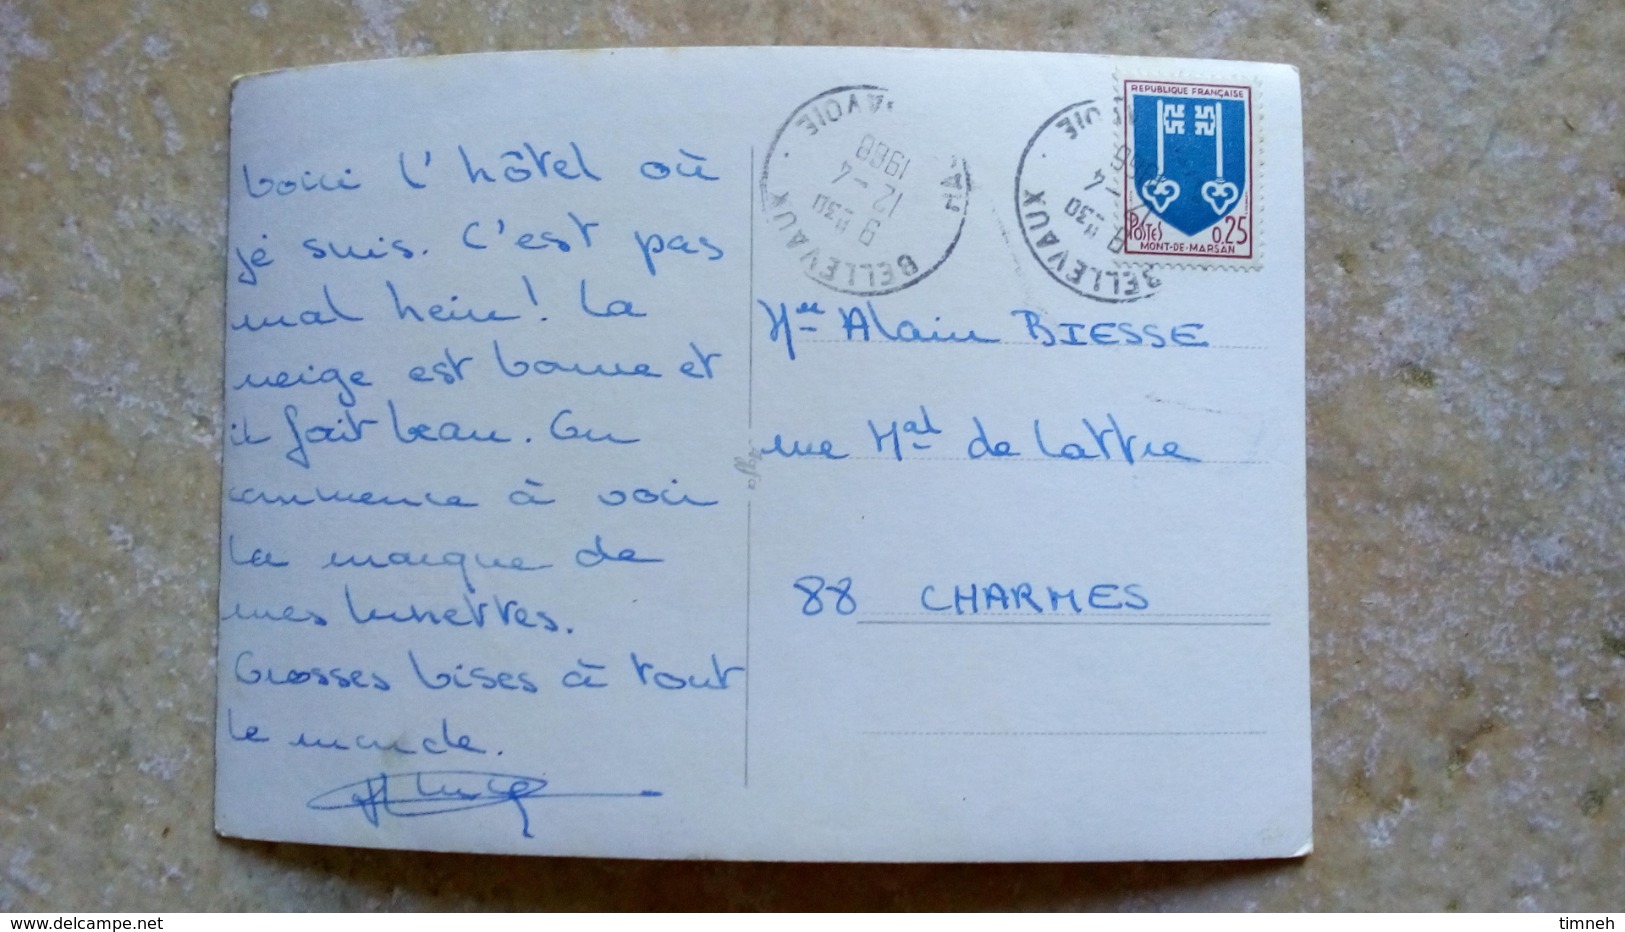 Voici l'hôtel où
je suis. C'est pas
mal hein! La
neige est bonne et
il fait beau. On
commence à voir
la marque de
mes lunettes.
Grosses bises à tout
le monde.
REPUBLIQUE FRANÇAISE
POSTES 0,25
MONT-DE-MARSAN
BELLEVAUX
9 H30
12 - 4
1968
SAVOIE
BELLEVAUX
9 H30
Mme Alain BIESSE
rue Mal de Lattre
88 CHARMES
Agfa
delcampe.net
timneh